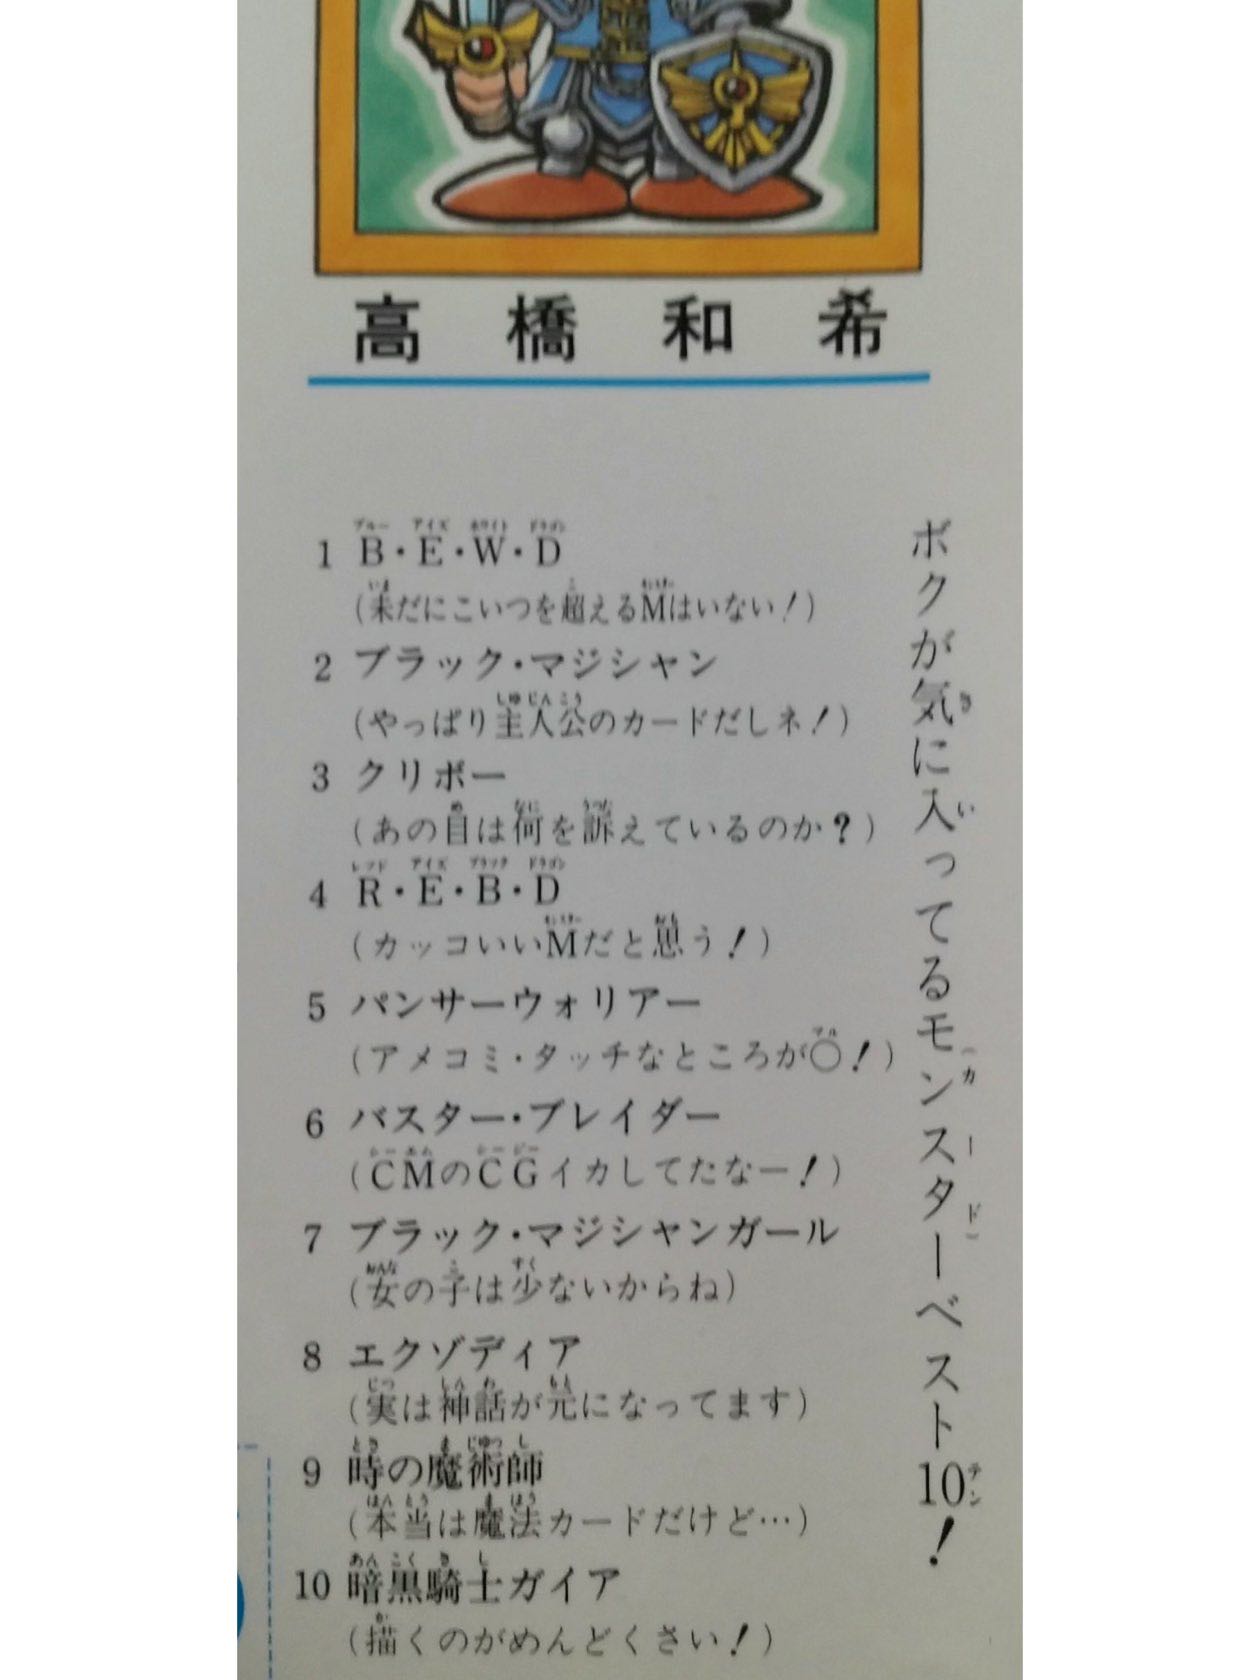 高橋和希
ボクが気に入ってるモンスターベスト10！
1 B・E・W・D
（未だにこいつを超えるMはいない！）
2 ブラック・マジシャン
（やっぱり主人公のカードだしネ！）
3 クリボー
（あの目は何を訴えているのか？）
4 R・E・B・D
（カッコいいMだと思う！）
5 パンサーウォリアー
（アメコミ・タッチなところが○！）
6 バスター・ブレイダー
（CMのCGイカしてたなー！）
7 ブラック・マジシャンガール
（女の子は少ないからね）
8 エクゾディア
（実は神話が元になってます）
9 時の魔術師
（本当は魔法カードだけど…）
10 暗黒騎士ガイア
（描くのがめんどくさい！）